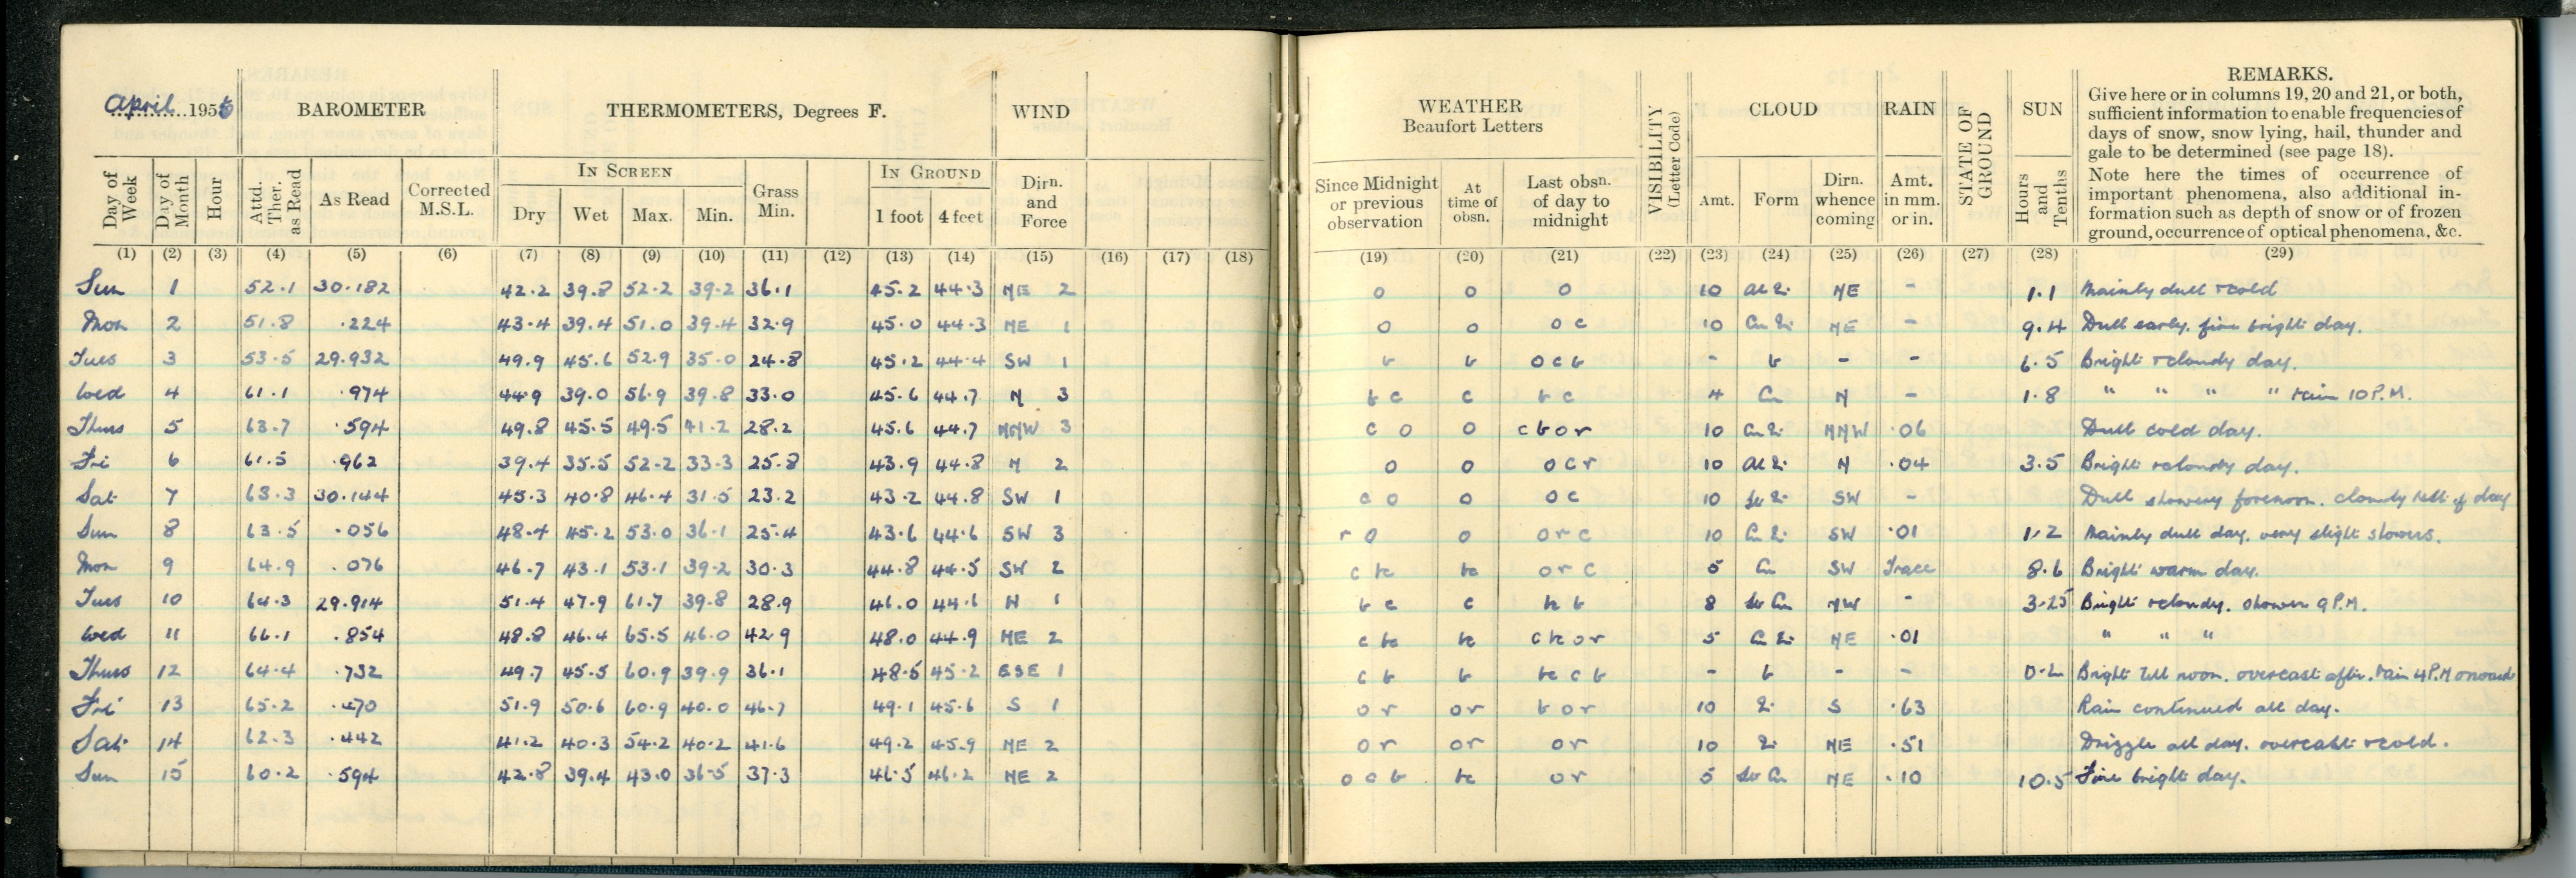 April 1956
BAROMETER
THERMOMETERS, Degrees F.
WIND
Day of Week
Day of Month
Hour
Attd. Ther. as Read
As Read
Corrected M.S.L.
IN SCREEN
Dry Wet Max. Min.
Grass Min.
IN GROUND
1 foot 4 feet
Dirn. and Force
(1) (2) (3) (4) (5) (6) (7) (8) (9) (10) (11) (12) (13) (14) (15) (16) (17) (18)
Sun 1 52.1 30.182 42.2 39.8 52.2 39.2 36.1 45.2 44.3 NE 2
Mon 2 51.8 .224 43.4 39.4 51.0 39.4 32.9 45.0 44.3 NE 1
Tues 3 53.5 29.932 49.9 45.6 52.9 35.0 24.8 45.2 44.4 SW 1
Wed 4 61.1 .974 44.9 39.0 56.9 39.8 33.0 45.6 44.7 N 3
Thurs 5 63.7 .594 49.8 45.5 49.5 41.2 28.2 45.6 44.7 NNW 3
Fri 6 61.5 .962 39.4 35.5 52.2 33.3 25.8 43.9 44.8 N 2
Sat 7 63.3 30.144 45.3 40.8 46.4 31.5 23.2 43.2 44.8 SW 1
Sun 8 63.5 .056 48.4 45.2 53.0 36.1 25.4 43.6 44.6 SW 3
Mon 9 64.9 .076 46.7 43.1 53.1 39.2 30.3 44.8 44.5 SW 2
Tues 10 64.3 29.914 51.4 47.9 61.7 39.8 28.9 46.0 44.6 N 1
Wed 11 66.1 .854 48.8 46.4 65.5 46.0 42.9 48.0 44.9 NE 2
Thurs 12 64.4 .732 49.7 45.5 60.9 39.9 36.1 48.5 45.2 ESE 1
Fri 13 65.2 .470 51.9 50.6 60.9 40.0 46.7 49.1 45.6 S 1
Sat 14 62.3 .442 41.2 40.3 54.2 40.2 41.6 49.2 45.9 NE 2
Sun 15 60.2 .594 42.8 39.4 43.0 36.5 37.3 46.5 46.2 NE 2
WEATHER
Beaufort Letters
Since Midnight or previous observation
At time of obsn.
Last obsn. of day to midnight
VISIBILITY (Letter Code)
CLOUD
Amt. Form
Dirn. whence coming
RAIN
Amt. in mm. or in.
STATE OF GROUND
SUN
Hours and Tenths
REMARKS.
Give here or in columns 19, 20 and 21, or both,
sufficient information to enable frequencies of
days of snow, snow lying, hail, thunder and
gale to be determined (see page 18).
Note here the times of occurrence of
important phenomena, also additional in-
formation such as depth of snow or of frozen
ground, occurrence of optical phenomena, &c.
(19) (20) (21) (22) (23) (24) (25) (26) (27) (28) (29)
o o o 10 NE - 1.1 Mainly dull & cold
o o o c 10 NE - 9.4 Dull early. fine bright day.
b b o c b - b - - 6.5 Bright & cloudy day.
b c c b c 4 Cu N - 1.8 " " " " rain 10 P.M.
c o o c b o r 10 NNW .06 Dull cold day.
o o o c r 10 N .04 3.5 Bright & cloudy day.
c o o o c 10 SW - Dull showery forenoon. cloudy rest of day
r o o o r c 10 SW .01 1.2 Mainly dull day. very slight showers.
c bc bc o r c 5 Cu SW Trace 8.6 Bright warm day.
b c c 8 NW - 3.25 Bright & cloudy. shower 9 P.M.
c bc bc c bc o r 5 NE .01 " " "
c b b bc c b - b - - 0.2 Bright till noon. overcast after. rain 4 P.M onwards
o r o r b o r 10 S .63 Rain continued all day.
o r o r o r 10 NE .51 Drizzle all day. overcast & cold.
o c b bc o r 5 NE .10 10.5 Fine bright day.